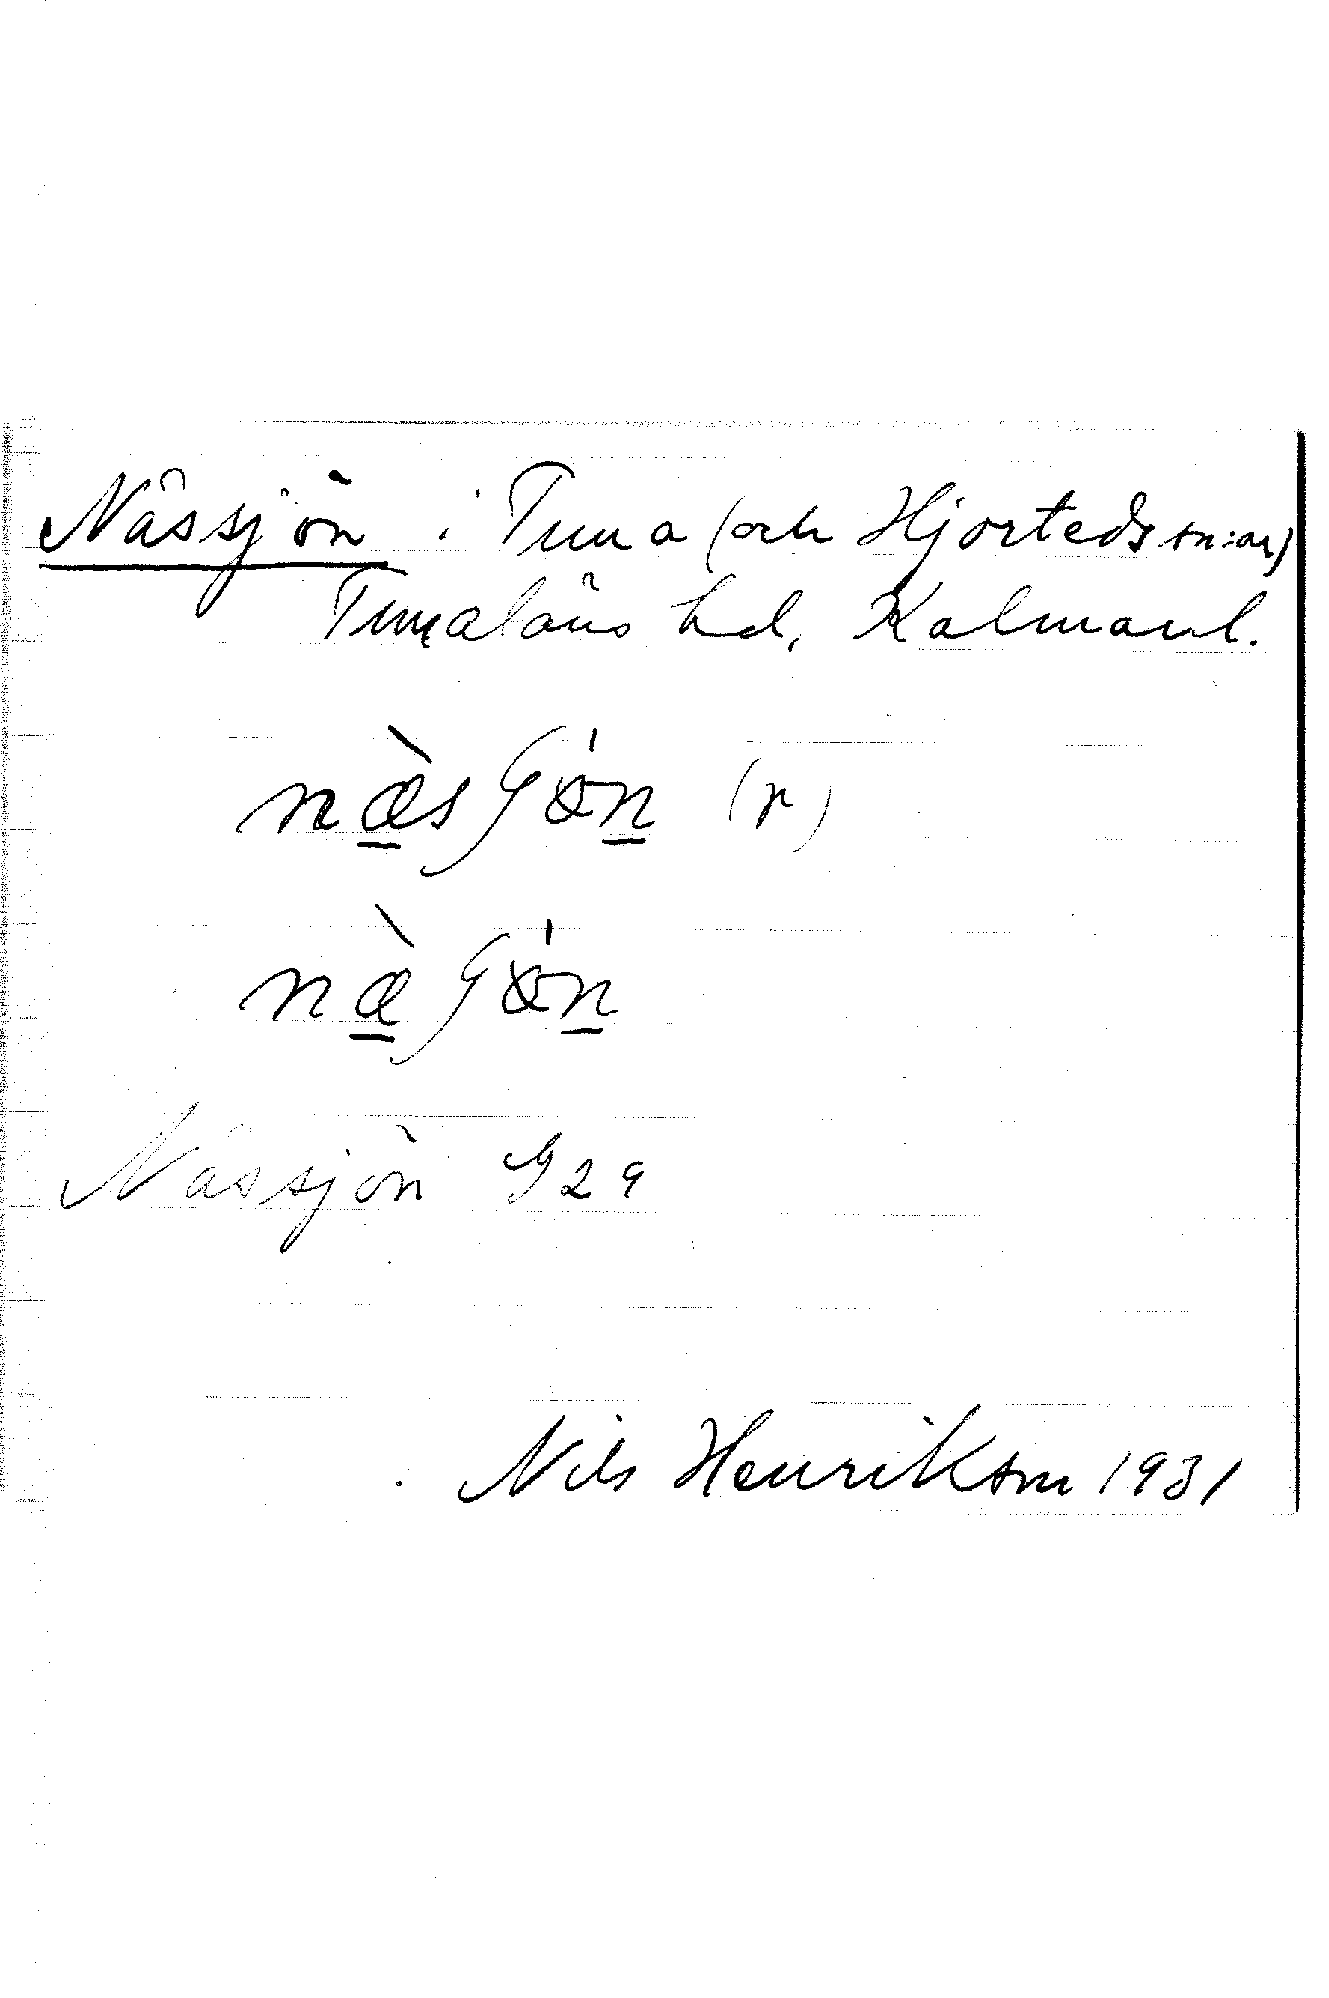 Nässjön i Tuna (och Hjorteds sn:ar)
Tunaläns hd, Kalmarl.
næ̀sʃön (r)
næ̀ʃön
Nässjön G 29
Nils Henrikson 1931